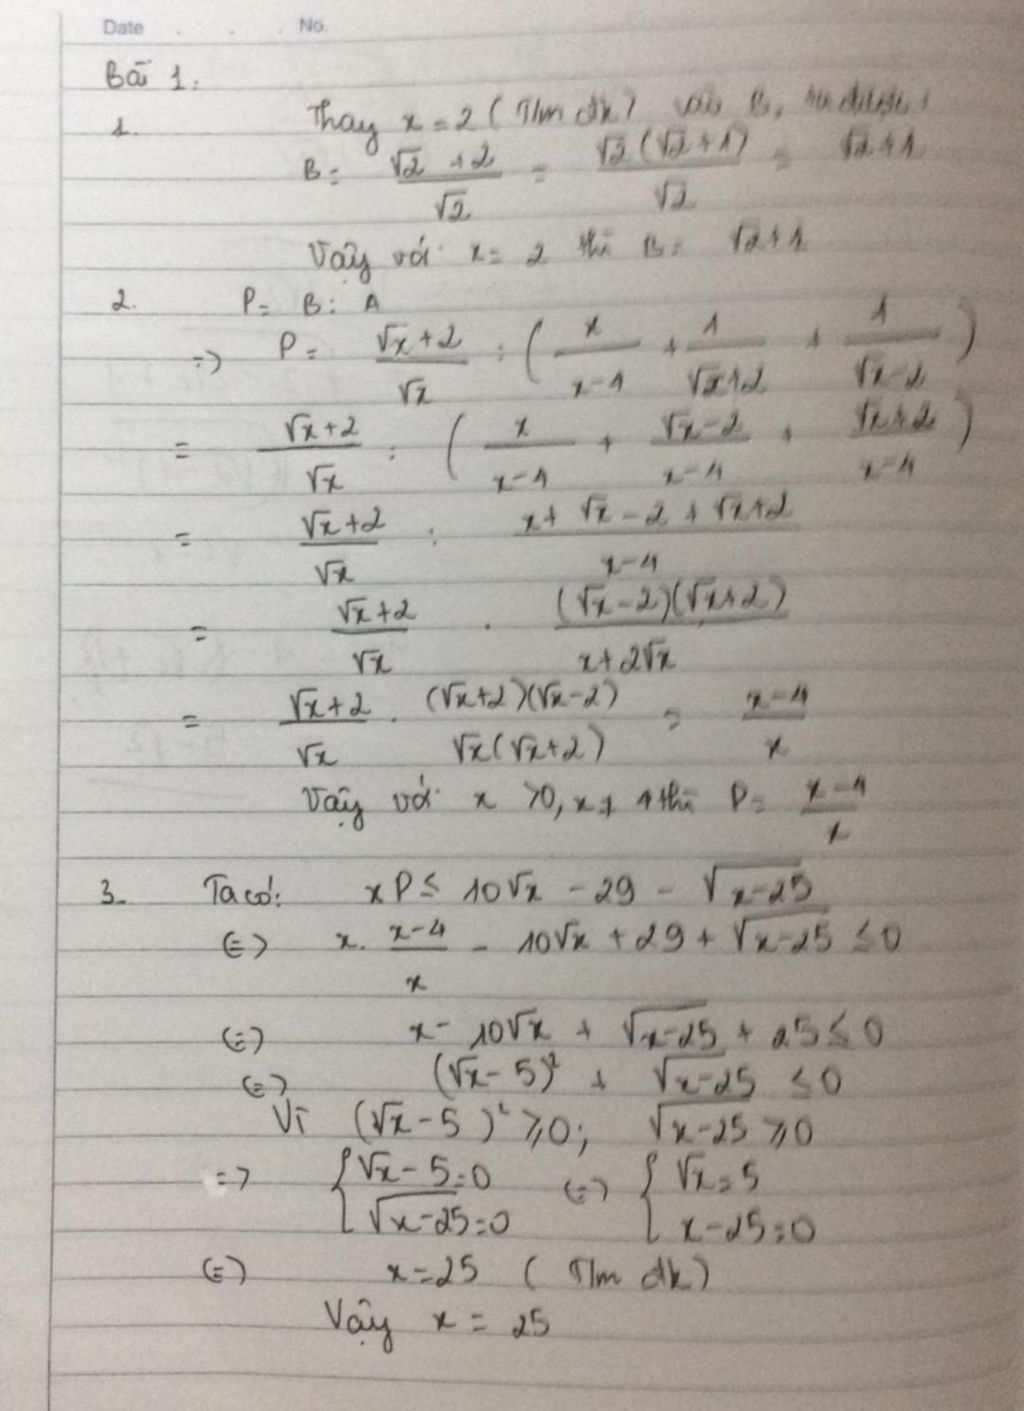 Date . . . No.
Bài 1:
1. Thay x = 2 (T/m đk) vào B, ta được:
B = (√2 + 2)/√2 = √2(√2 + 1)/√2 = √2 + 1
Vậy với x = 2 thì B = √2 + 1
2. P = B : A
=> P = (√x + 2)/√x : ( x/(x - 4) + 1/(√x + 2) + 1/(√x - 2) )
= (√x + 2)/√x : ( x/(x - 4) + (√x - 2)/(x - 4) + (√x + 2)/(x - 4) )
= (√x + 2)/√x : (x + √x - 2 + √x + 2)/(x - 4)
= (√x + 2)/√x . (√x - 2)(√x + 2)/(x + 2√x)
= (√x + 2)/√x . (√x + 2)(√x - 2)/(√x(√x + 2)) = (x - 4)/x
Vậy với x > 0, x ≠ 4 thì P = (x - 4)/x
3. Ta có: xP ≤ 10√x - 29 - √(x - 25)
(=) x . (x - 4)/x - 10√x + 29 + √(x - 25) ≤ 0
(=) x - 10√x + √(x - 25) + 25 ≤ 0
(=) (√x - 5)² + √(x - 25) ≤ 0
Vì (√x - 5)² ≥ 0; √(x - 25) ≥ 0
=> { √x - 5 = 0 (=) { √x = 5
√(x - 25) = 0 x - 25 = 0
(=) x = 25 (T/m đk)
Vậy x = 25